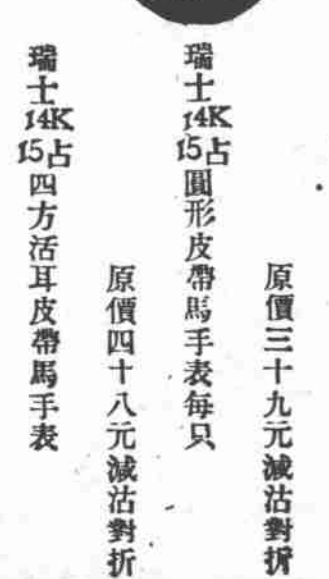 原價三十九元減沽對折
瑞士14K15占圓形皮帶馬手表每只
原價四十八元減沽對折
瑞士14K15占四方活耳皮帶馬手表